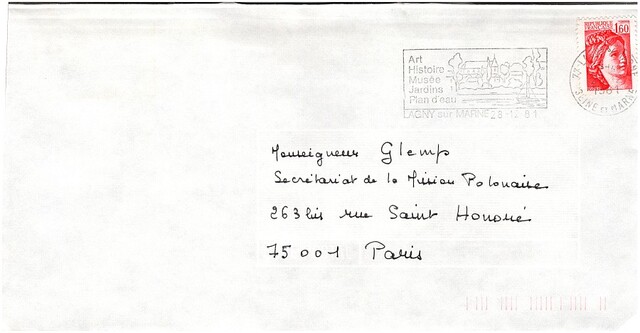 REPUBLIQUE FRANCAISE
1,60
Art
Histoire
Musée
Jardins
Plan d'eau
LAGNY sur MARNE 28-12 81
1981
SEINE ET MARNE
Monseigneur Glemp
Secrétariat de la Mission Polonaise
263 bis rue Saint Honoré
75001 Paris